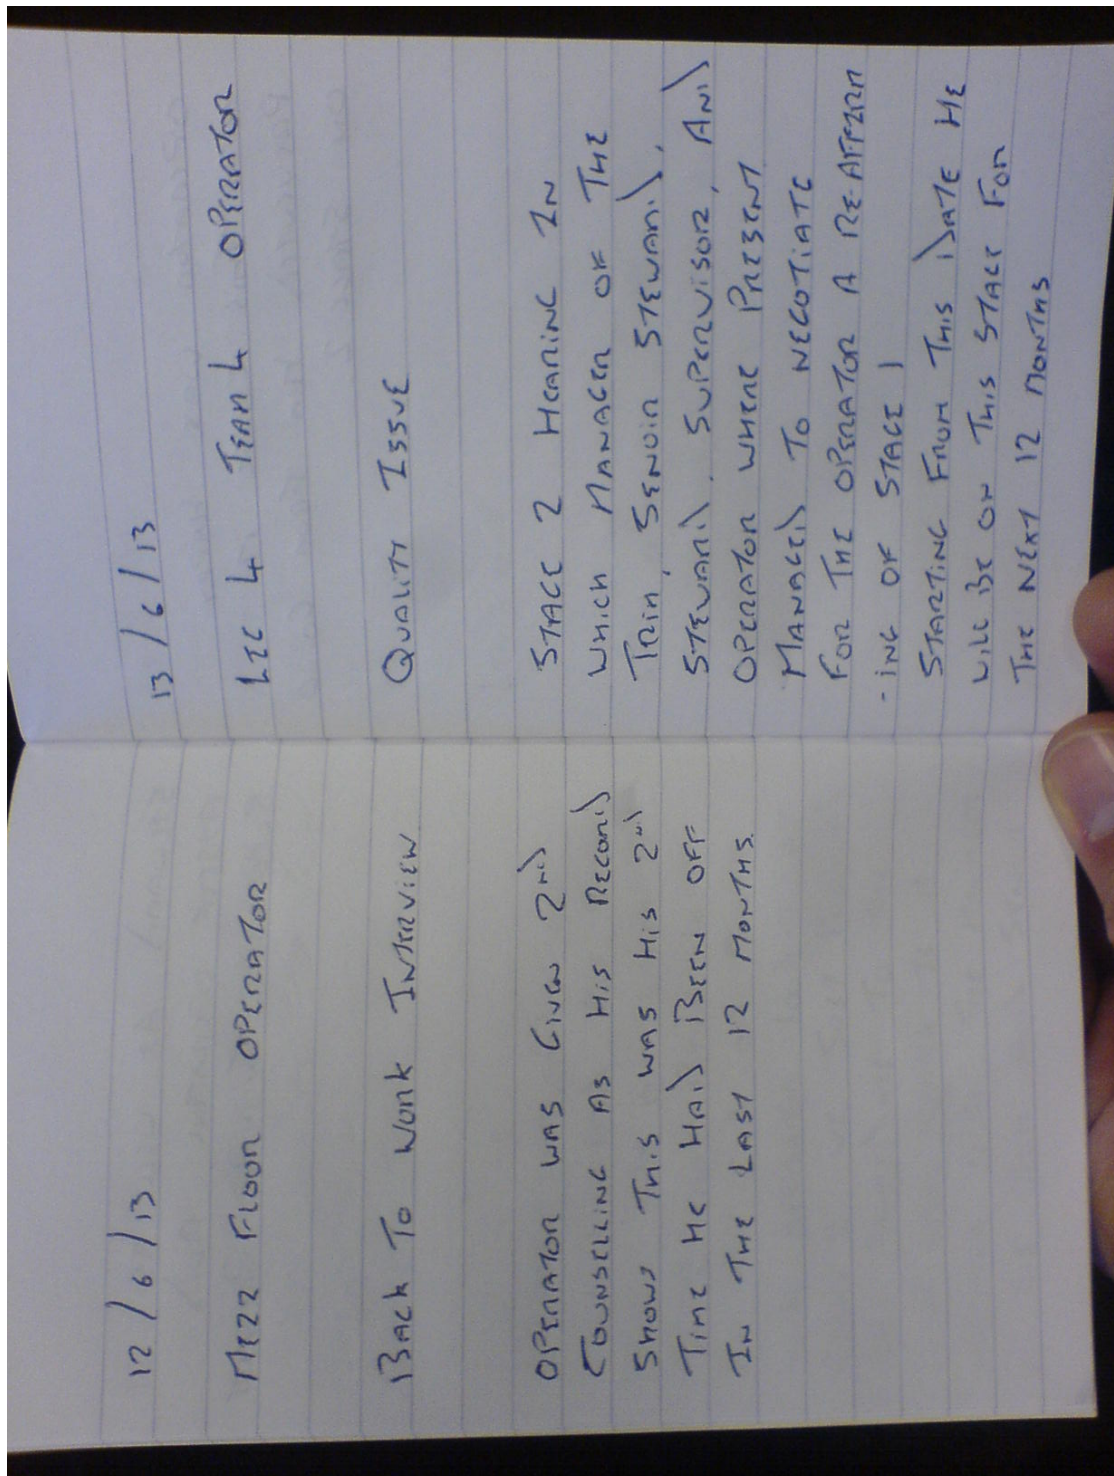 12/6/13
MEZZ FLOOR OPERATOR
BACK TO WORK INTERVIEW
OPERATOR WAS GIVEN 2ND
COUNSELLING AS HIS RECORD
SHOWS THIS WAS HIS 2ND
TIME HE HAD BEEN OFF
IN THE LAST 12 MONTHS.
13/6/13
LEG 4 TEAM 4 OPERATOR
QUALITY ISSUE
STAGE 2 HEARING IN
WHICH MANAGER OF THE
TRIM, SENOIR STEWARD,
STEWARD, SUPERVISOR, AND
OPERATOR WHERE PRESENT
MANAGED TO NEGOTIATE
FOR THE OPERATOR A RE-AFFIRM
-ING OF STAGE 1
STARTING FROM THIS DATE HE
WILL BE ON THIS STAGE FOR
THE NEXT 12 MONTHS